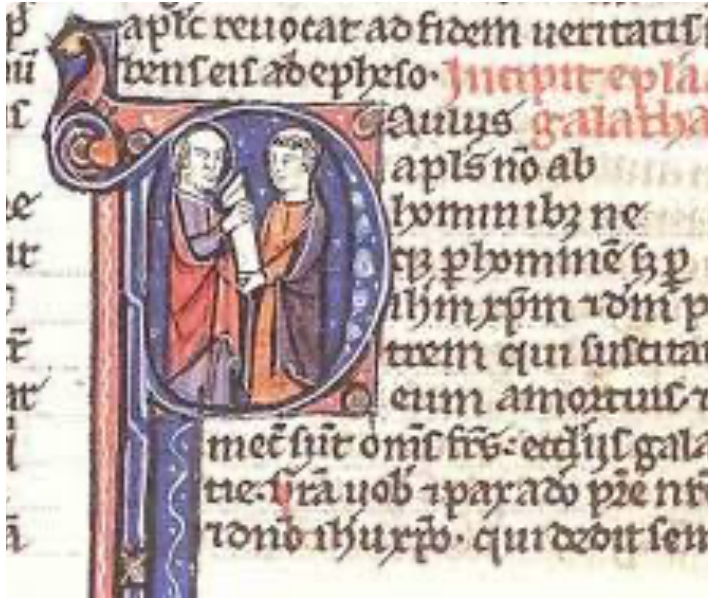 apl̄c reuocat ad fidem ueritatis
bens eis ab epheso. Incipit epl̄a
PAulus galatha
apl̄s nō ab
hominibꝫ ne
qꝫ ꝑ hominē sꝫ ꝑ
ihm̄ xp̄m ⁊ dm̄ p
trem qui suscitau
eum a mortuis ⁊
mec̄ sūt om̄s fr̄s. eccl̄iis gala
tie. Gr̄a uob̄ ⁊ pax a dō p̄re nr̄o
⁊ dn̄o ihu xp̄o. qui dedit sem